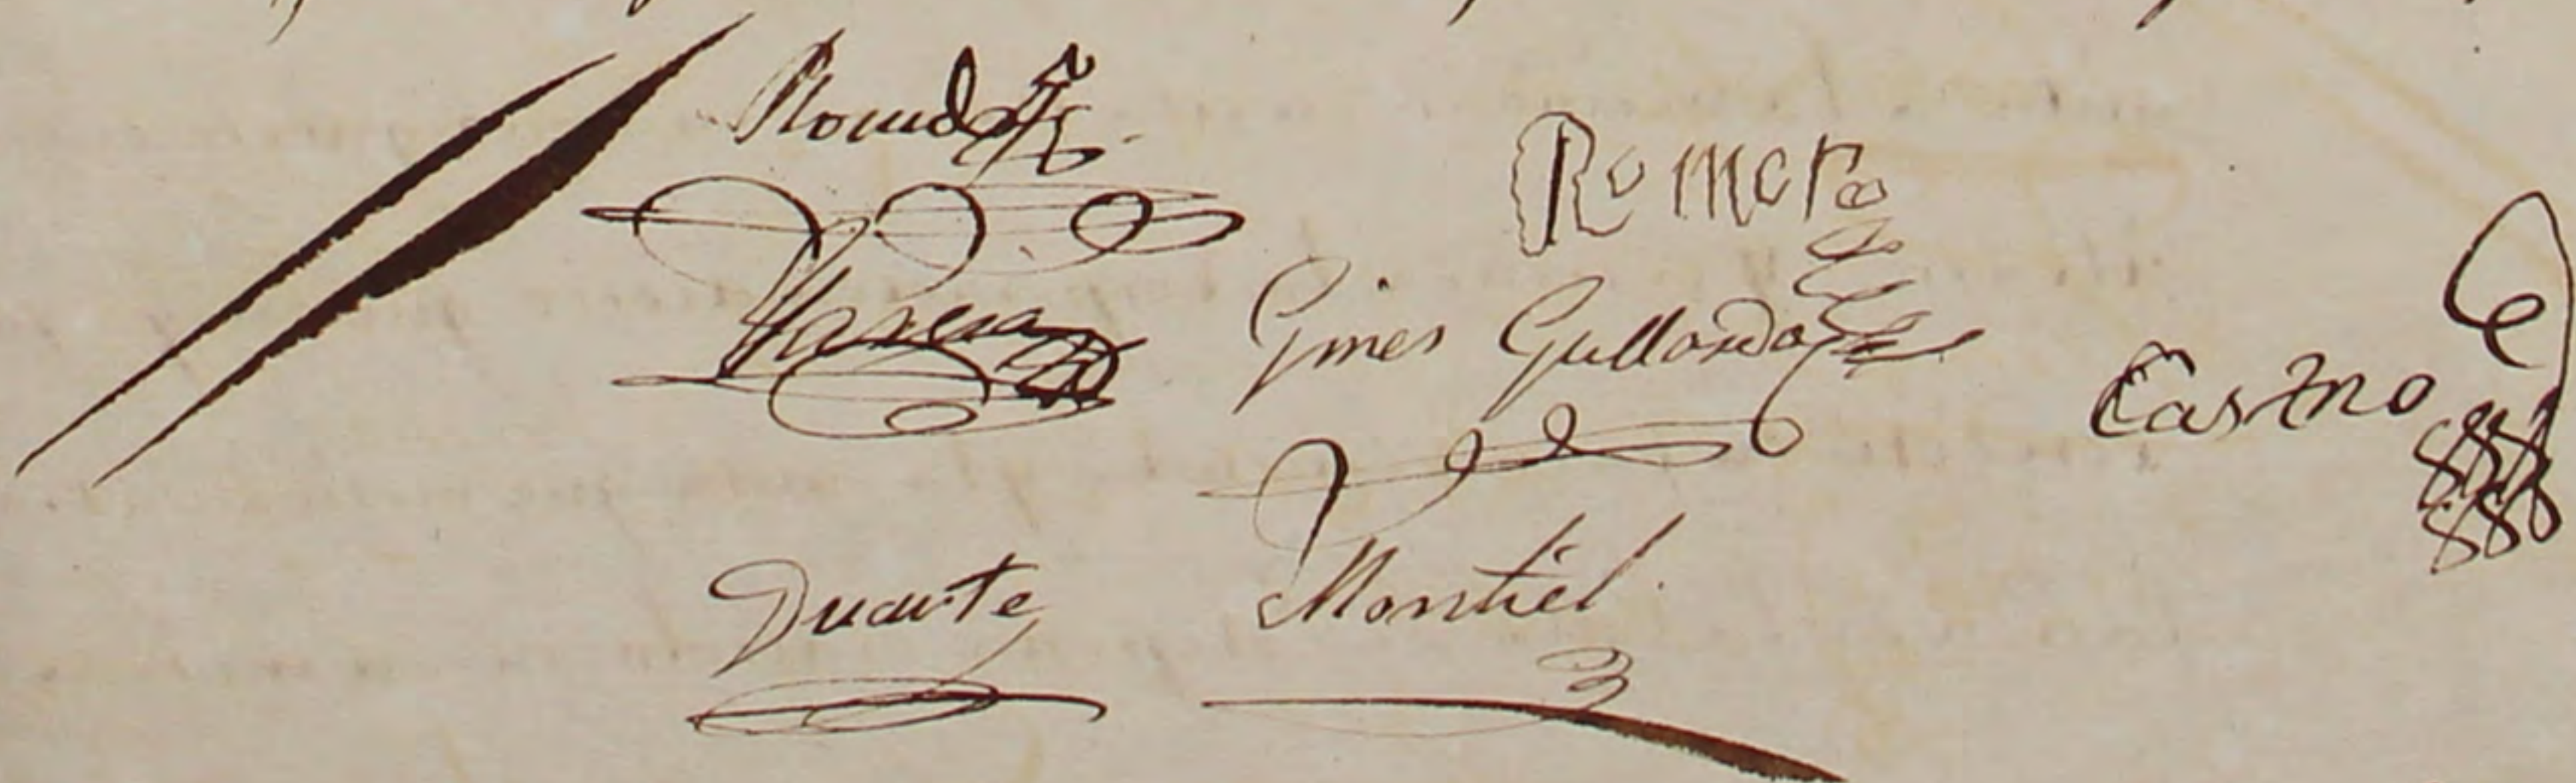 Romero
Gines Gallardo
Castro
Duarte Montiel